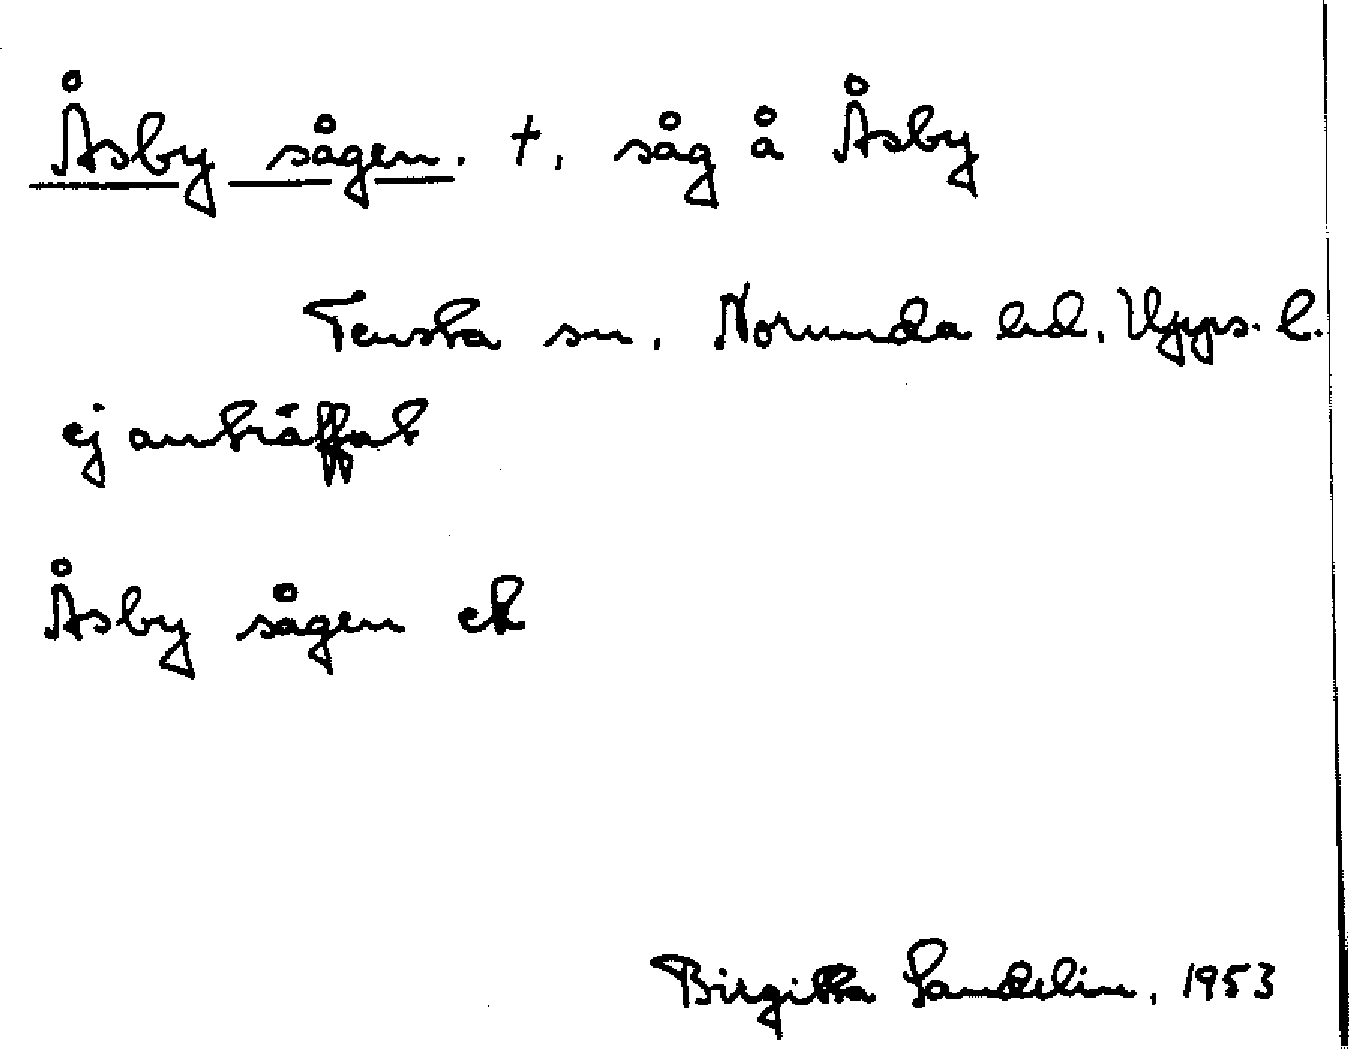 Åsby sågen. †, såg å Åsby
Tensta sn, Norunda hd, Upps. l.
ej anträffat
Åsby sågen ek
Birgitta Sandelin, 1953